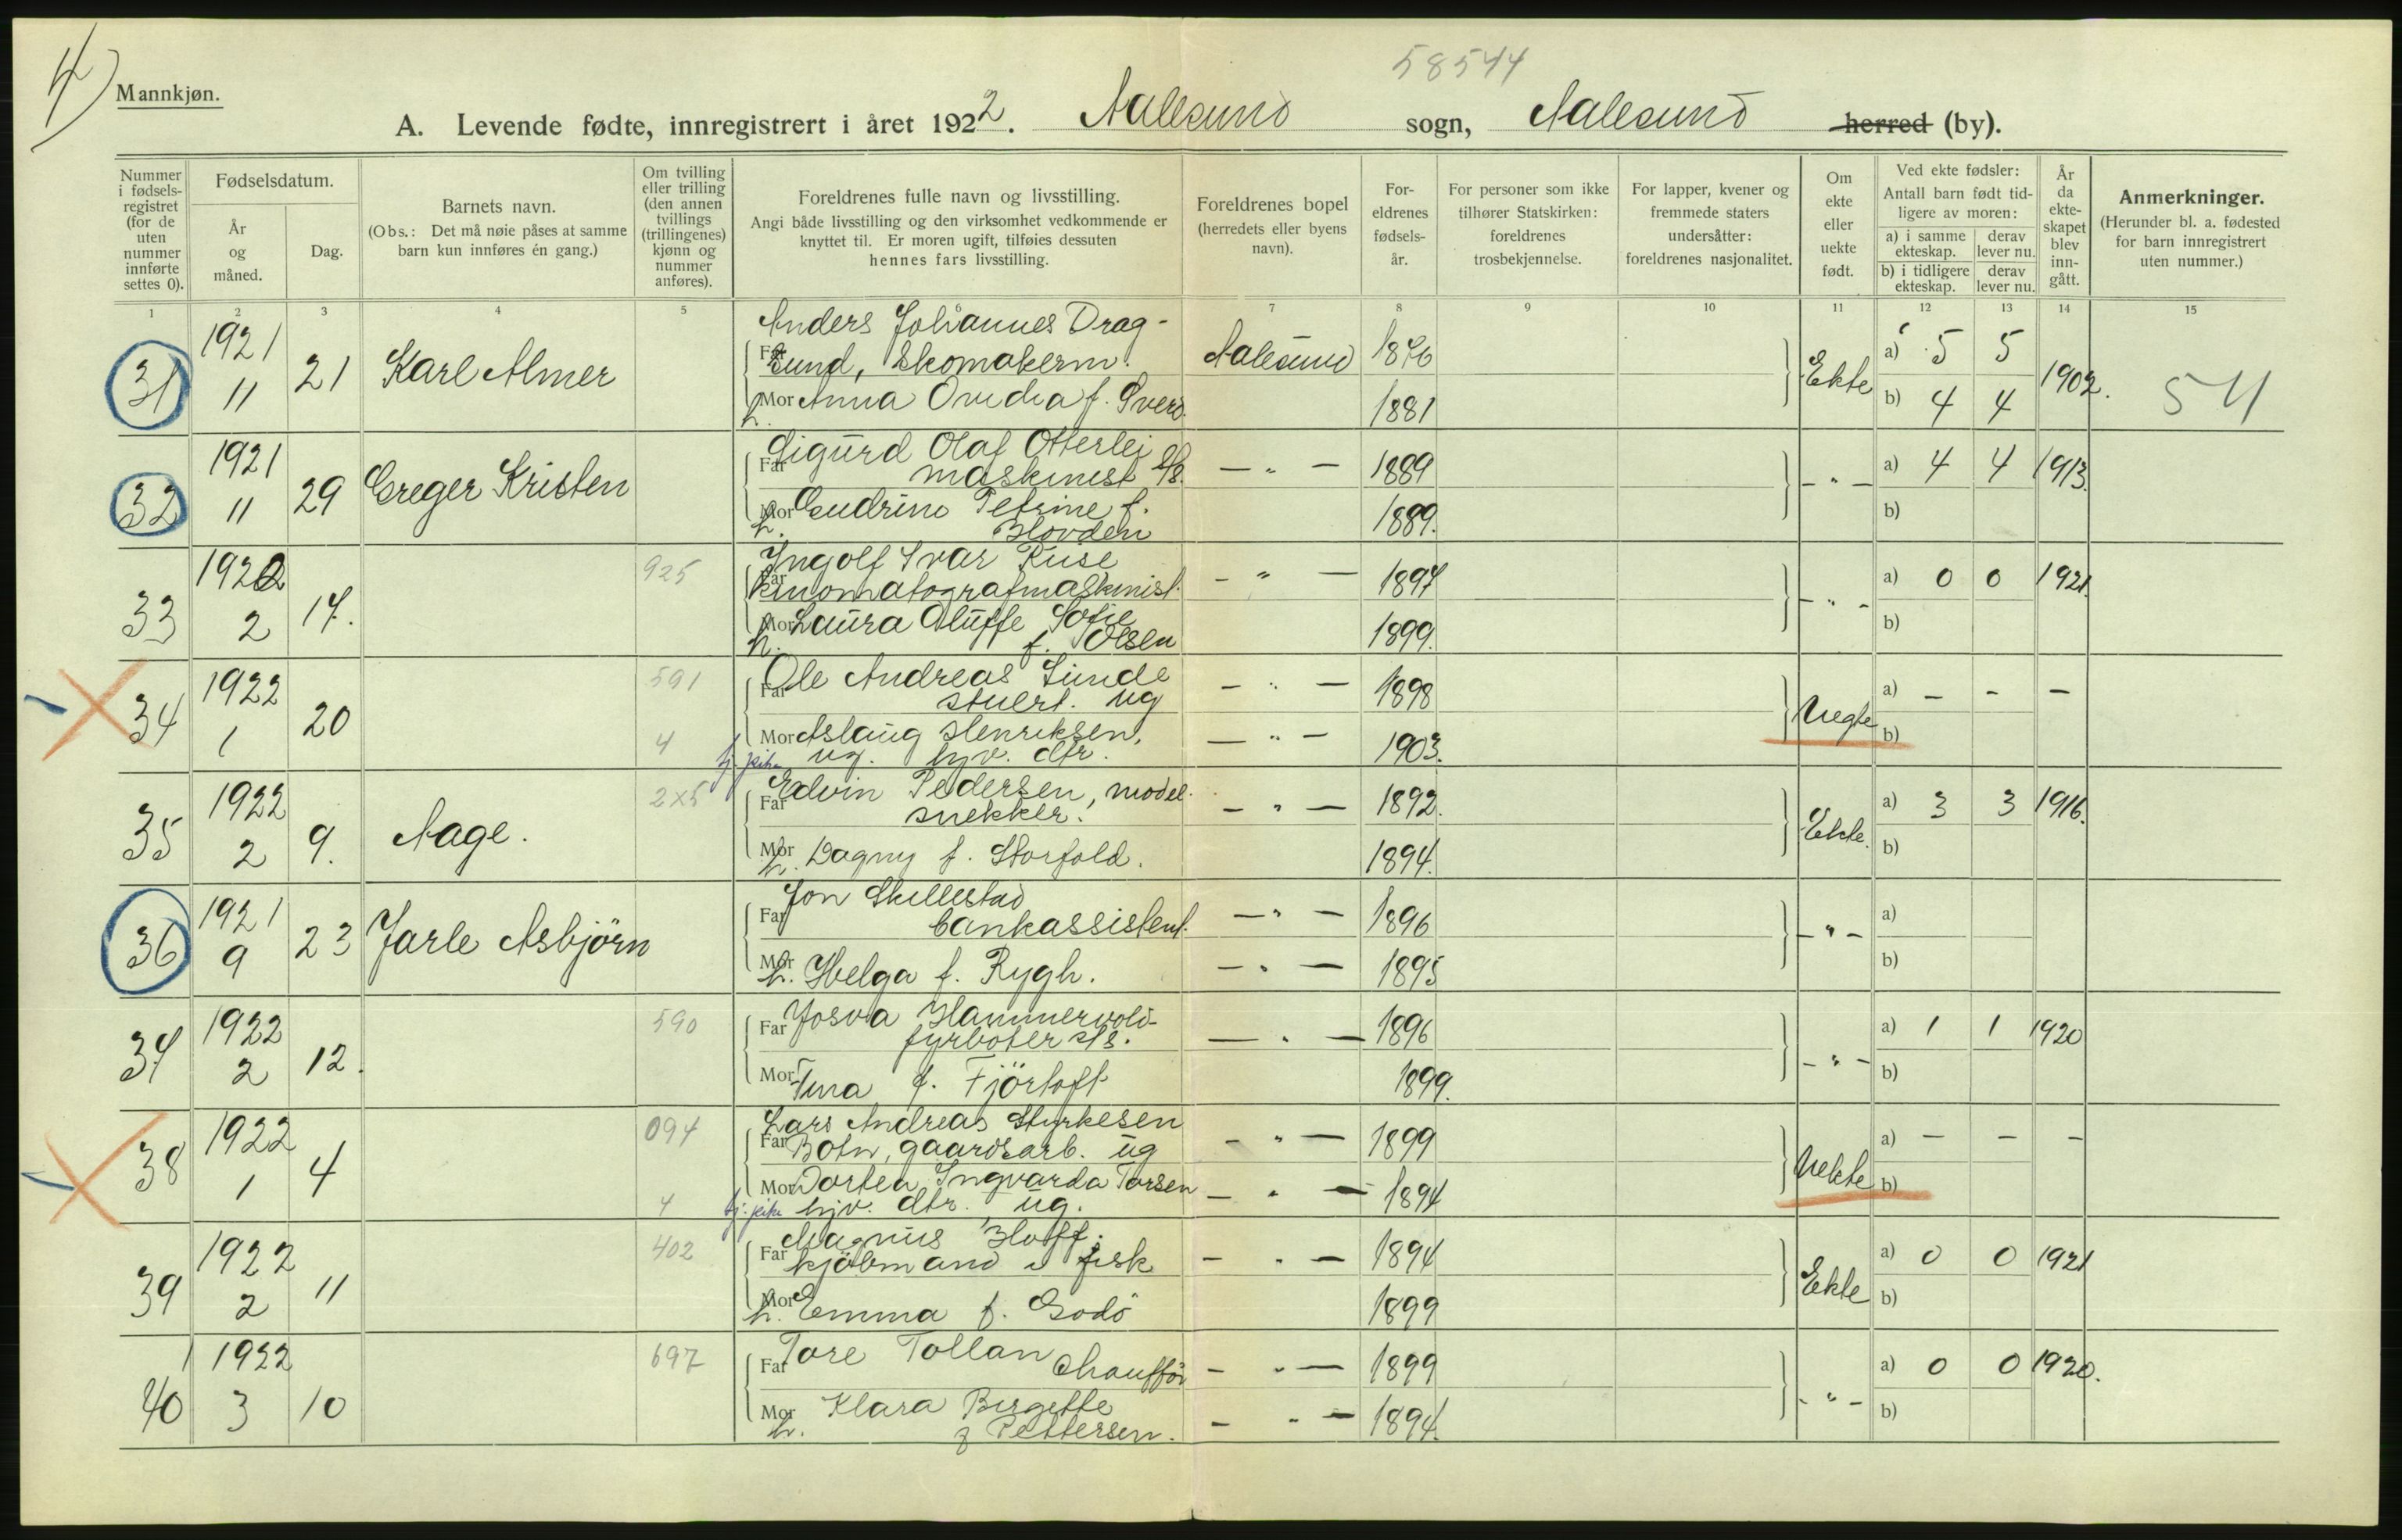 4)
Mannkjøn.
58544
A. Levende fødte, innregistrert i året 1922. Aalesund sogn, Aalesund herred (by).
Nummer i fødselsregistret (for de uten nummer innførte settes 0).
Fødselsdatum.
År og måned.
Dag.
Barnets navn.
(Obs.: Det må nøie påses at samme barn kun innføres én gang.)
Om tvilling eller trilling (den annen tvillings (trillingenes) kjønn og nummer anføres).
Foreldrenes fulle navn og livsstilling.
Angi både livsstilling og den virksomhet vedkommende er knyttet til. Er moren ugift, tilføies dessuten hennes fars livsstilling.
Foreldrenes bopel (herredets eller byens navn).
Foreldrenes fødselsår.
For personer som ikke tilhører Statskirken: foreldrenes trosbekjennelse.
For lapper, kvener og fremmede staters undersåtter: foreldrenes nasjonalitet.
Om ekte eller uekte født.
Ved ekte fødsler: Antall barn født tidligere av moren:
a) i samme ekteskap. derav lever nu.
b) i tidligere ekteskap. derav lever nu.
År da ekteskapet blev inngått.
Anmerkninger.
(Herunder bl. a. fødested for barn innregistrert uten nummer.)
1 2 3 4 5 6 7 8 9 10 11 12 13 14 15
31 1921 11 21 Karl Almer
Anders Johannes Drag-
Far sund, Skomakerm. Aalesund 1876 Ekte a) 5 5 1902. 54
Mor h. Anna Ovedia f. Sverd. 1881 b) 4 4
32 1921 11 29 Greger Kristen
Far Sigurd Olaf Otterlei
maskinist S/S. — " — 1889 — " — a) 4 4 1913.
Mor h. Gudrun Petrine f.
Hovden 1889. b)
33 1922 2 17. 925
Far Ingolf Ivar Ruse
kinomatografmaskinist. — " — 1897 — " — a) 0 0 1921.
Mor h. Laura Oluffe Sofie
f. Olsen 1899. b)
34 1922 1 20 591
Far Ole Andreas Sunde
stuert. ug — " — 1898 Uegte a) — — —
4 Mor Aslaug Henriksen, — " — 1903. b)
ug. hjv. dtr.
35 1922 2 9. Aage. 2x5
Far Edvin Pedersen, model-
snekker. — " — 1892. Ekte. a) 3 3 1916.
Mor h. Dagny f. Storfold. 1894. b)
36 1921 9 23 Jarle Asbjörn
Far Jon Skillestad
bankassistent. — " — 1896 — " — a)
Mor h. Helga f. Rygh. — " — 1895 b)
37 1922 2 12. 590
Far Josva Hammervold-
fyrböter S/S. — " — 1896 — " — a) 1 1 1920
Mor Tina f. Fjörtoft 1899. b)
38 1922 1 4 094
Lars Andreas Styrkesen
Far Botn, gaardsarb. ug — " — 1899 Uekte a) — — —
Mor Dortea Ingvarda Torsen — " — 1894 b)
4 hjv. dtr. ug.
39 1922 2 11 402
Far Magnus Hoff,
kjöbmand i fisk — " — 1894 Ekte a) 0 0 1921
Mor h. Emma f. Godö 1899 b)
40 1922 3 10 697
Far Tore Tollan
Chaufför — " — 1899 — " — a) 0 0 1920.
Mor h. Klara Birgitte
f Pettersen. — " — 1894. b)